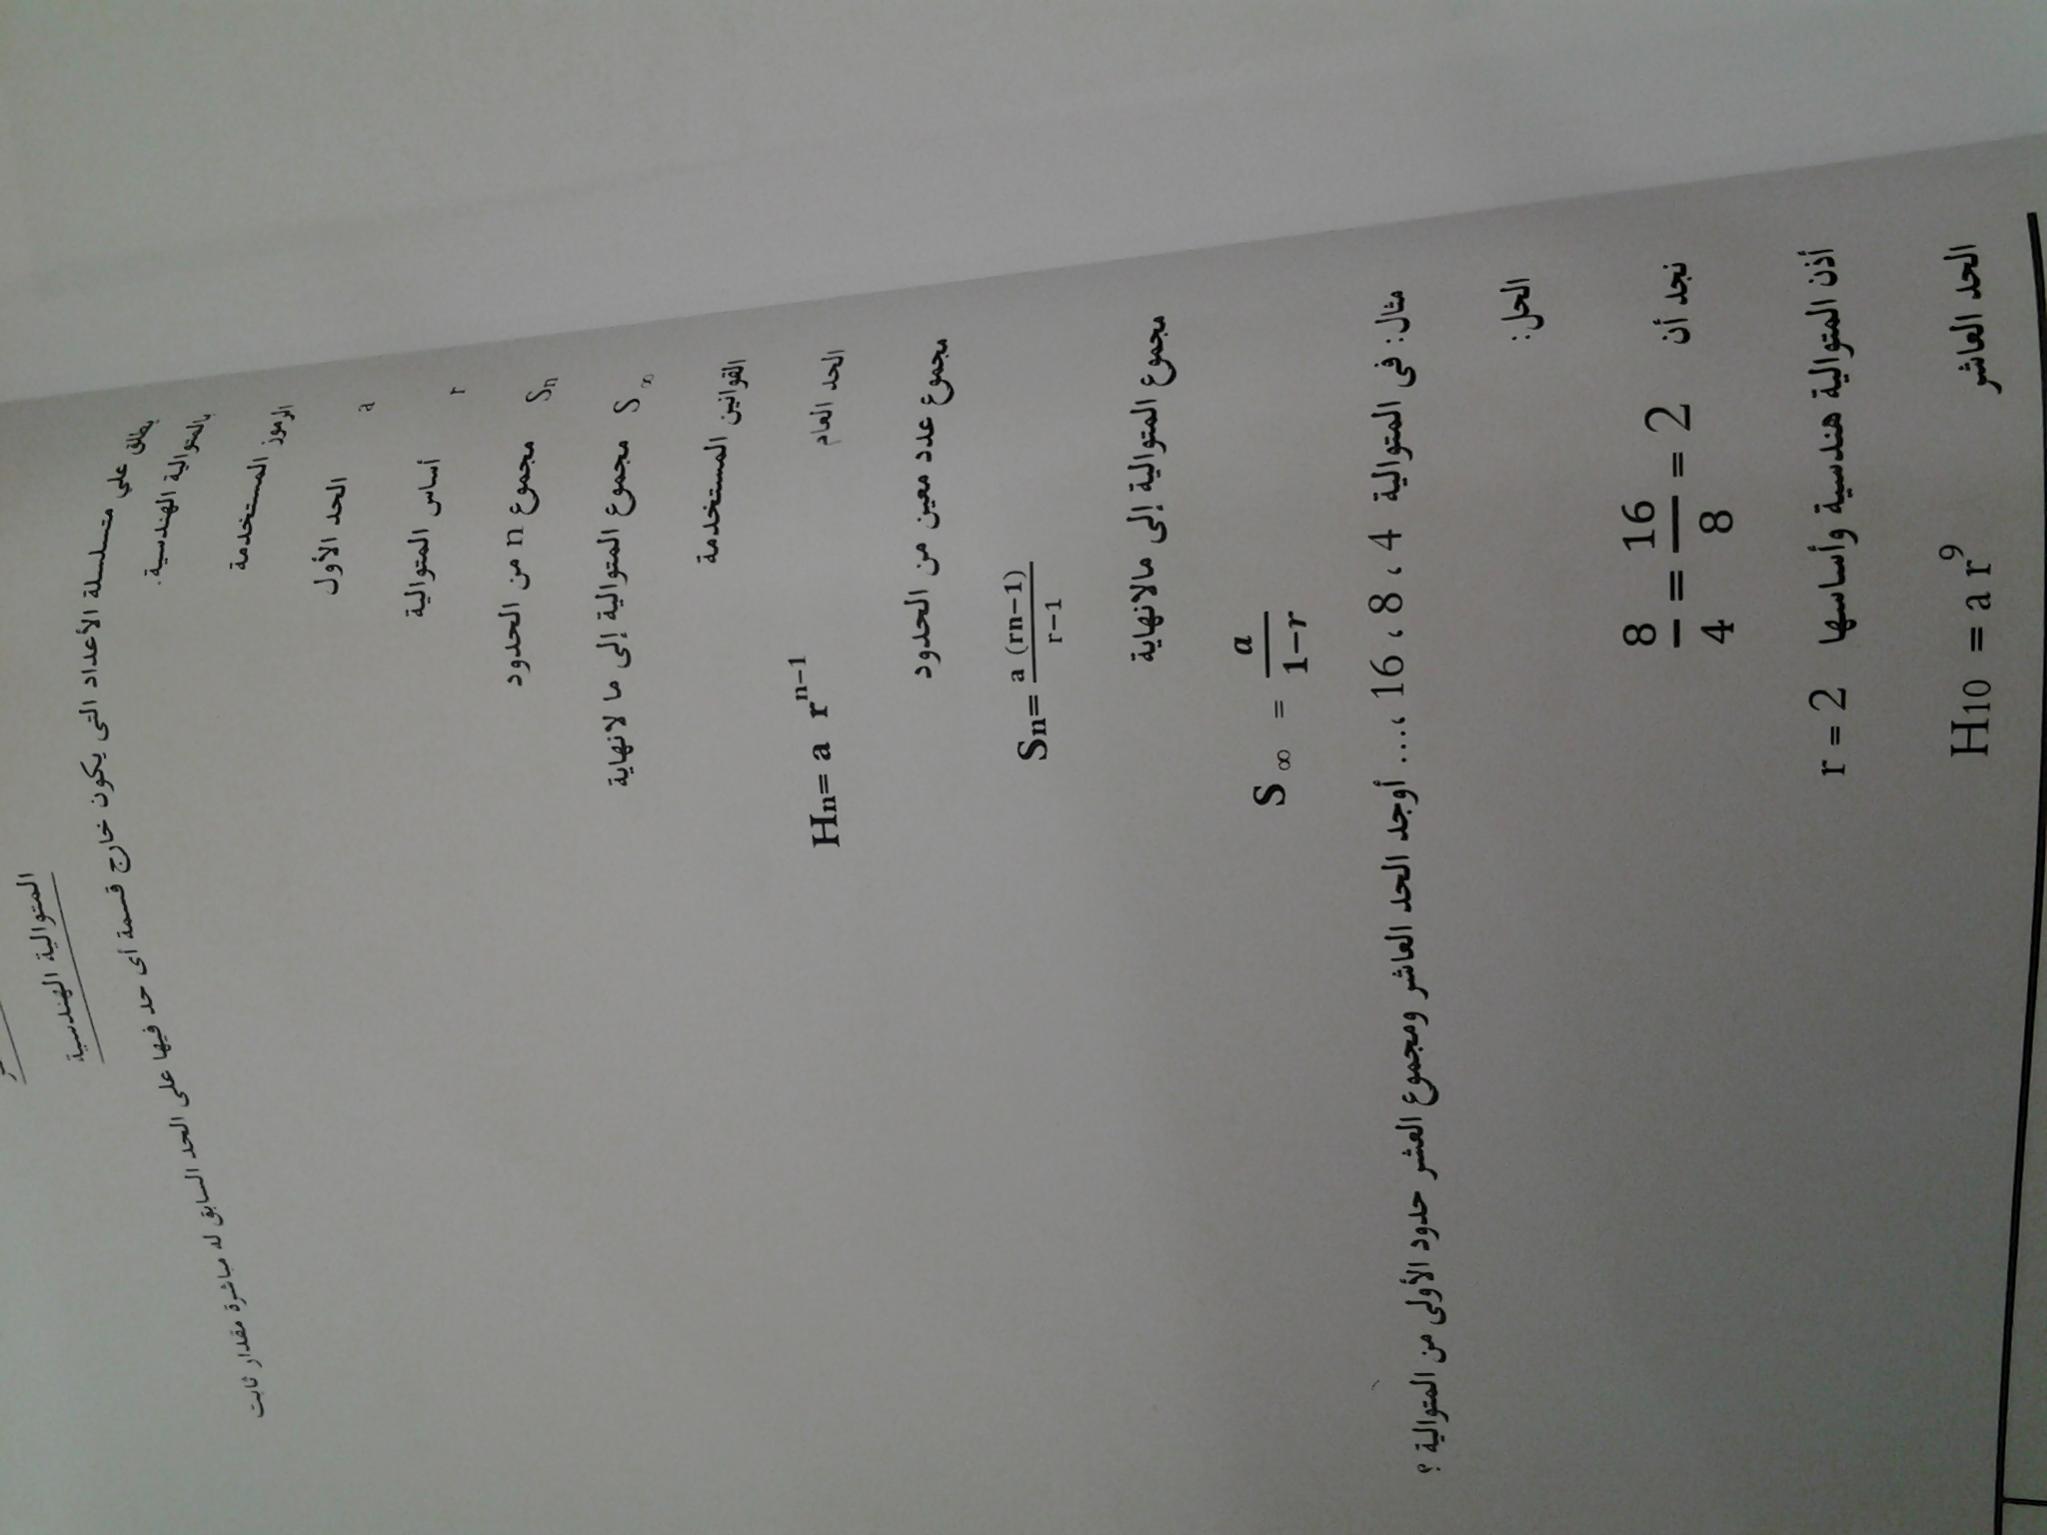 المتوالية الهندسية
يطلق علي متسلسلة الأعداد التى يكون خارج قسمة أى حد فيها على الحد السابق له مباشرة مقدار ثابت
بالمتوالية الهندسية.
الرموز المستخدمة
a الحد الأول
r أساس المتوالية
Sn مجموع n من الحدود
S∞ مجموع المتوالية إلى ما لانهاية
القوانين المستخدمة
الحد العام Hn= a r^n−1
مجموع عدد معين من الحدود
Sn= a (rn−1) / r−1
مجموع المتوالية إلى مالانهاية
S∞ = a / 1−r
مثال: فى المتوالية 4 ، 8 ، 16 ،.... أوجد الحد العاشر ومجموع العشر حدود الأولى من المتوالية ؟
الحل:
نجد أن 8/4 = 16/8 = 2
أذن المتوالية هندسية وأساسها r = 2
الحد العاشر H10 = a r^9